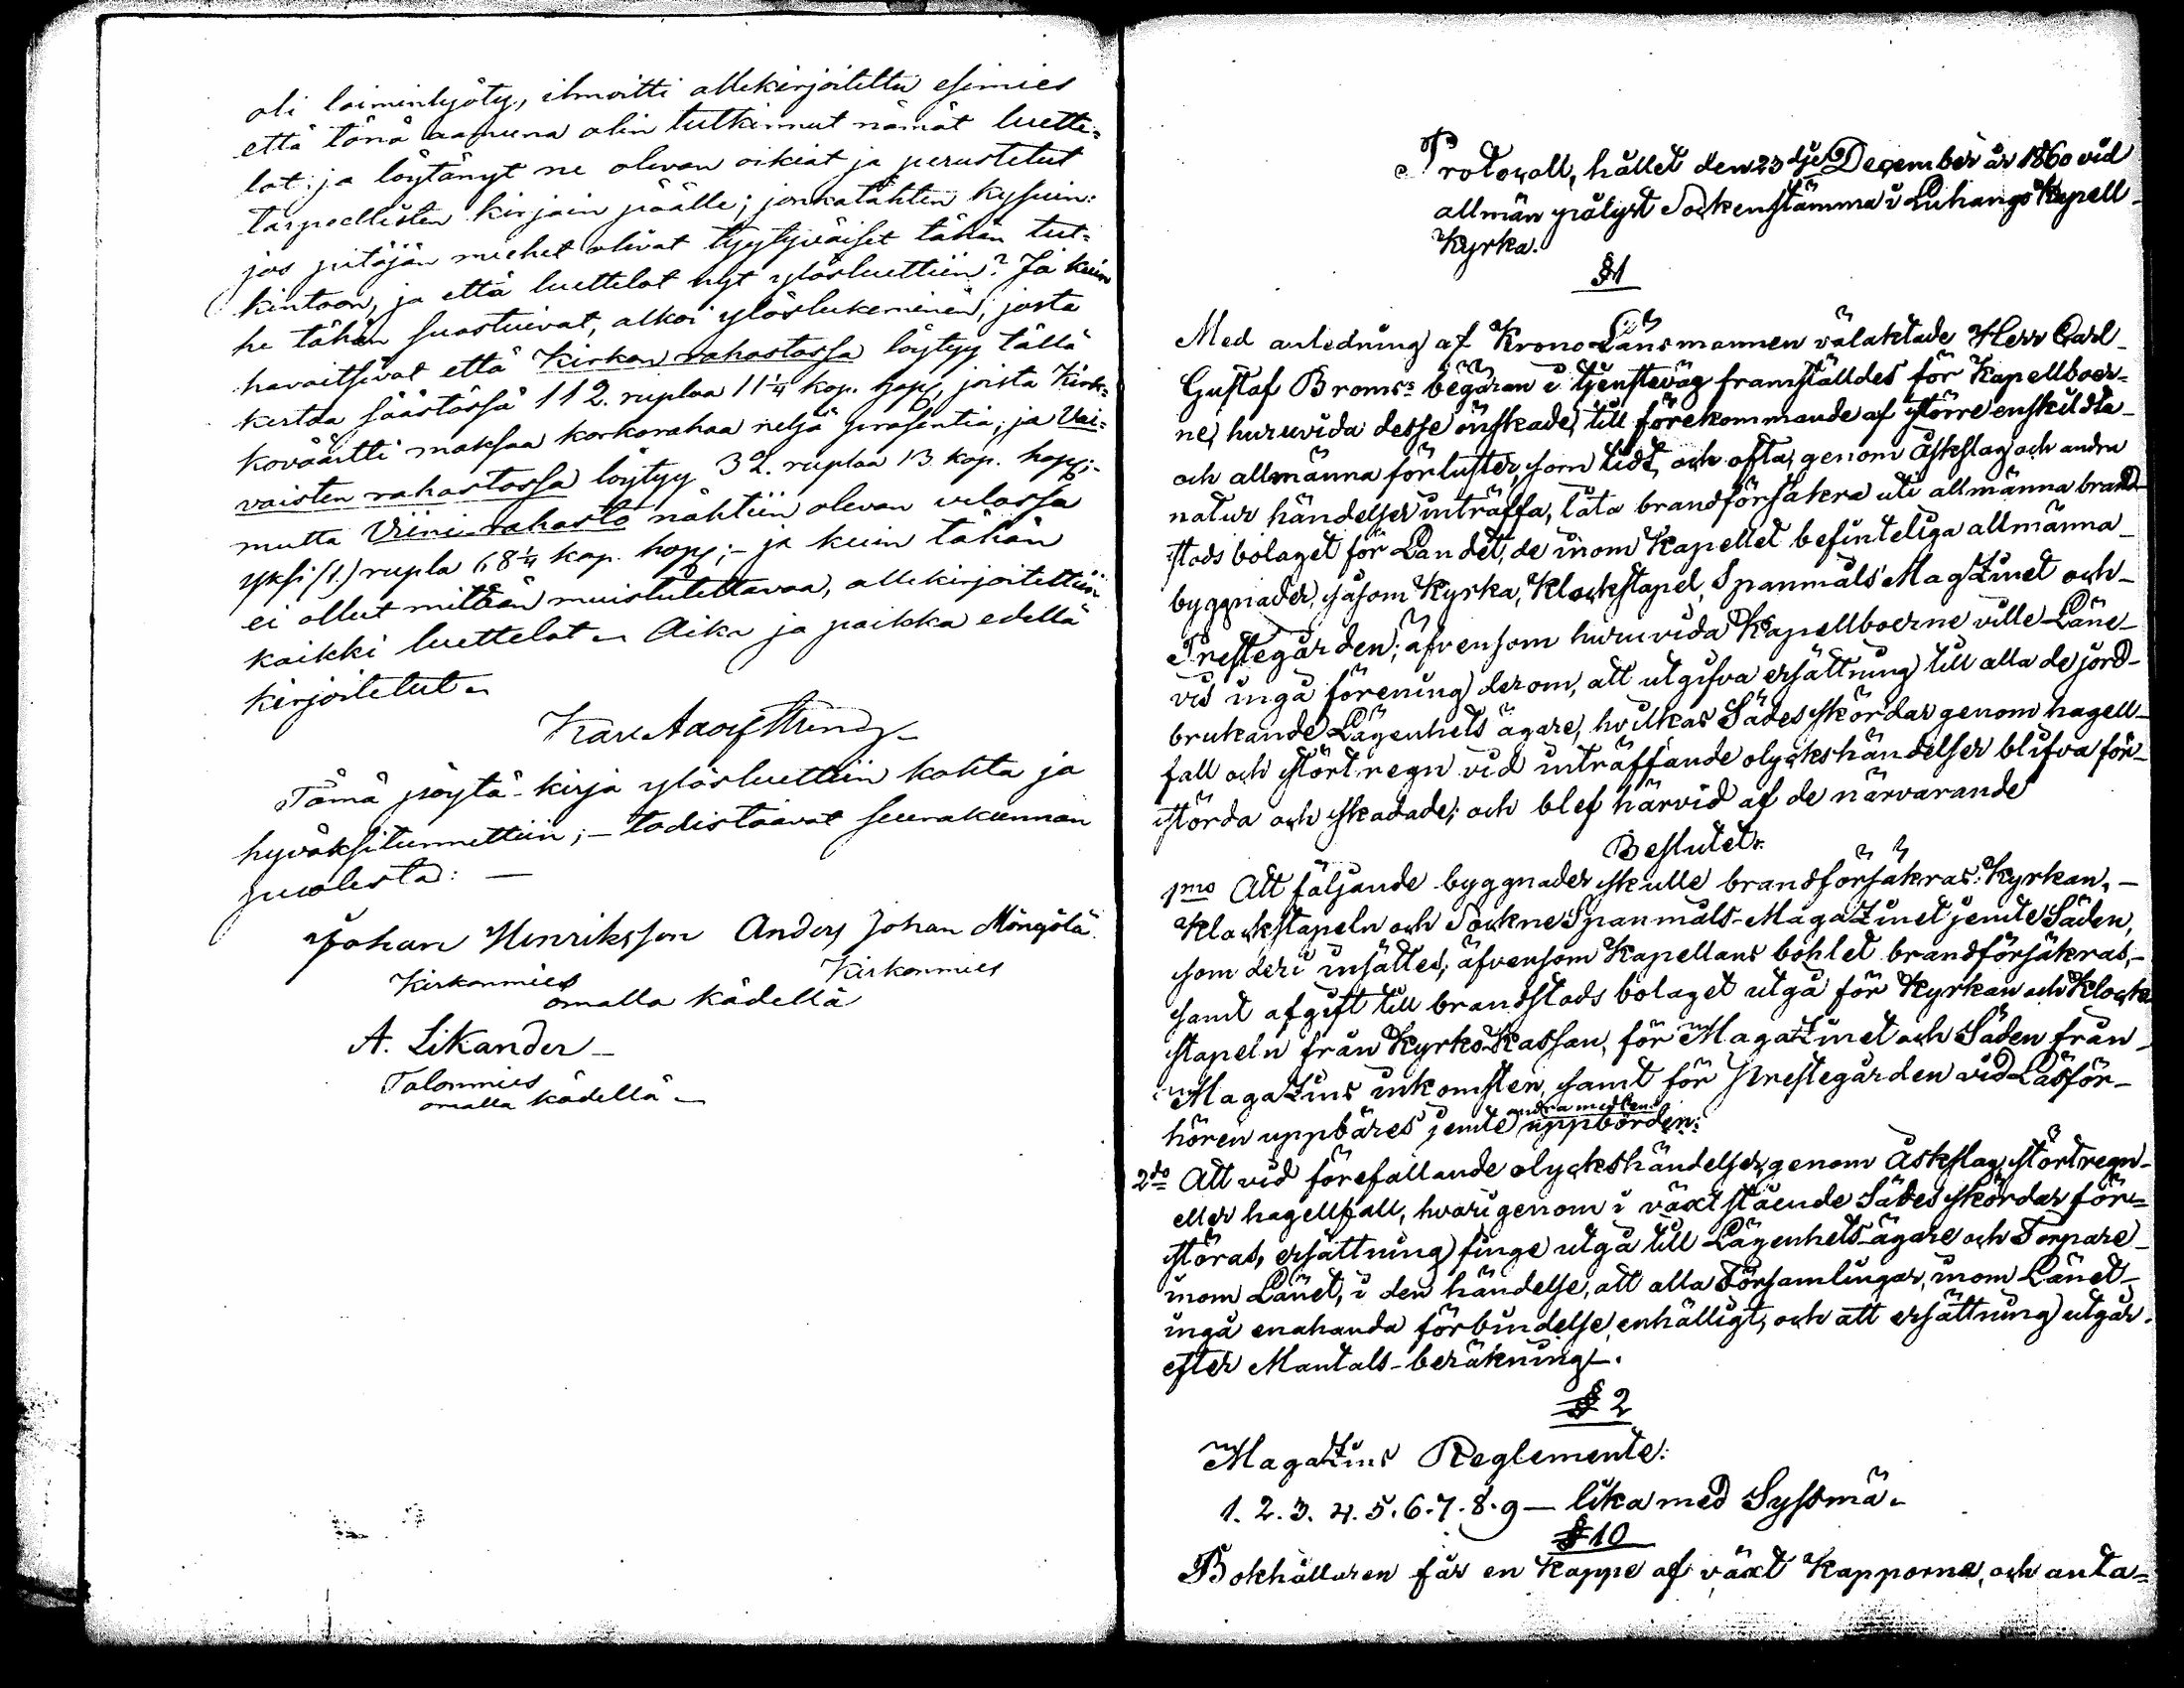 oli laiminlyöty, ilmoitti allekirjoitettu esimies
että tänä aamuna olin tutkinnut nämät luette=
lot ja löytänyt ne olevan oikiat ja perustetut
tarpeellisten kirjain päälle; jonkatähten kysuin:
jos pitäjän miehet olivat tyytyväiset tähän tut=
kintoon, ja että luettelot nyt ylösluettiin? Ja kuin
he tähän suostuivat, alkoi ylöslukeminen, josta
havaitsivat että Kirkon rahastossa löytyy tällä
kertaa säästössä 112. ruplaa 11 1/4 kop. hopj, joista Kirk=
kovääртti maksaa korkorahaa neljä prosentia; ja Vai=
vaisten rahastossa löytyy 32. ruplaa 13 kop. hopj;-
mutta Viini-rahasto nähtiin olevan velassa
yksi (1.) rupla 68 1/4 kop. hopj;- ja kuin tähän
ei ollut mitään muistutettavaa, allekirjoitettiin
kaikki luettelot. Aika ja paikka edellä
kirjoitetut.
Karl Adolf
Tämä pöytä-kirja ylösluettiin kohta ja
hyväksitunnettiin; - todistaavat seurakunnan
puolesta: -
Johan Henriksson Anders Johan Mörgölä
Kirkonmies Kirkonmies
omalla kädellä
A. Sikander -
Talonmies
omalla kädellä -
Protocoll, hållet den 23dje December år 1860 vid
allmän pålyst Sockenstämma i Luhango Kapell
Kyrka.
§ 1
Med anledning af Krono Länsmannen välaktade Herr Carl
Gustaf Broms's begäran i tjensteväg framställdes för Kapellboer=
ne, huruvida desse önskade, till förekommande af större enskildta
och allmänna förluster, som tidt och ofta, genom Åskslag och andra
natur händelser inträffa, låta brandförsäkra uti allmänna brand-
stods bolaget för Landet, de inom Kapellet befinteliga allmänna
byggnader, såsom Kyrka, Klockstapel, Spanmåls Magazinet och
Prestegården; äfvensom huruvida Kapellboerne ville Läne-
vis ingå förening derom, att utgifva ersättning till alla de jord-
brukande Lägenhets ägare, hvilkas Sädes skördar genom hagell-
fall och störtregn vid inträffande olyckshändelser blifva för-
störda och skadade; och blef härvid af de närvarande
Beslutet:
1mo Att följande byggnader skulle brandförsäkras: Kyrkan, -
Klockstapeln och Sockne Spanmåls-Magazinet jemte Säden,
som deri insättes; äfvensom Kapellans bohlet brandförsäkras, -
samt afgift till brandstods bolaget utgå för Kyrkan och Klock
stapeln från Kyrko Kassan, för Magazinet och Säden från
Magazins inkomsten, samt för Prestegården vid Läsför-
hören uppbäres jemte andra medlens uppbörden:
2do Att vid förefallande olyckshändelser, genom Åskslag, störtregn-
eller hagellfall, hvarigenom i växt stående Sädes skördar för=
störas, ersättning finge utgå till Lägenhets-ägare och Torpare
inom Länet, i den händelse, att alla Församlingar, inom Länet
ingå enahanda förbindelse enhälligt, och att ersättning utgår
efter Mantals-beräkning.
§ 2
Magazins Reglemente:
1. 2. 3. 4. 5. 6. 7. 8. 9 - lika med Syssmä.
§ 10
Bokhållaren får en Kappe af växt Kapporna, och anta=